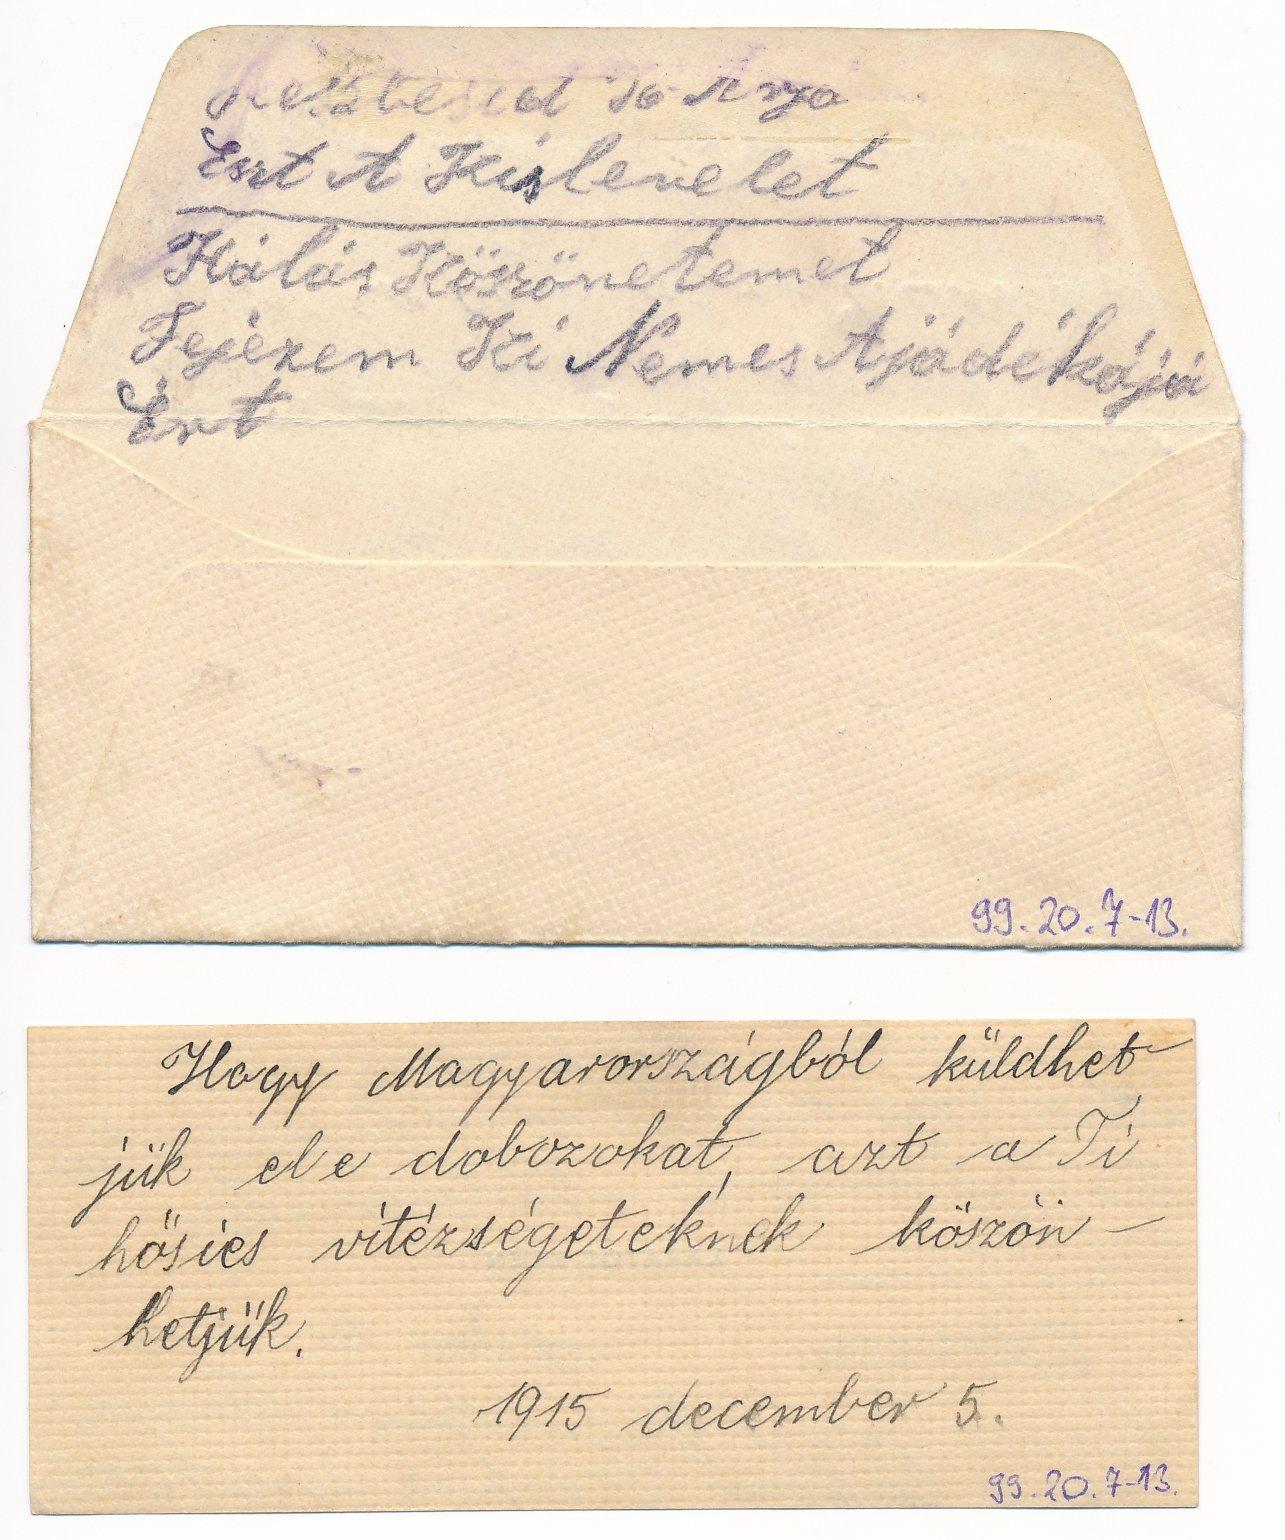 Ezt A Kis levelet
Hálás Köszönetemet
Fejezem Ki Nemes Ajádékájá
Ért
99.20.7-13.
Hogy Magyarországból küldhet
jük el e dobozokat, azt a Ti
hősies vitézségeteknek köszön-
hetjük.
1915 december 5.
99.20.7-13.